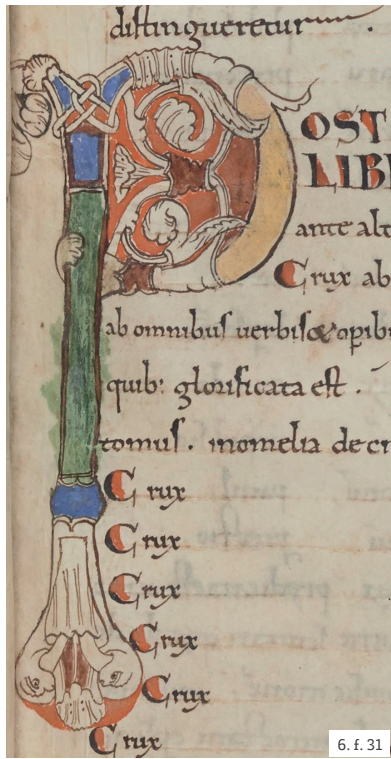 distingueretur
POST
LIBE
ante alt
Crux ab
ab omnibus uerbis & opib
quib: glorificata est .
tomus . inomelia de cr
Crux
Crux
Crux
Crux
Crux
Crux
6. f. 31